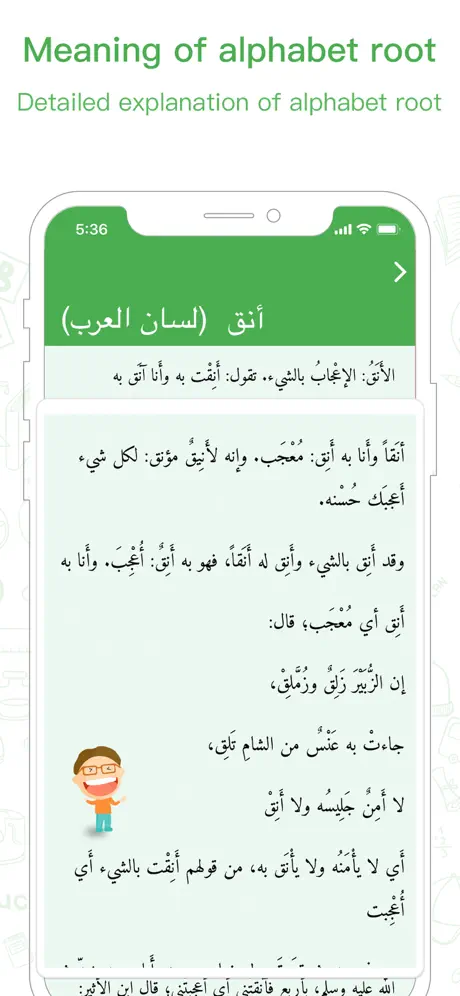 Meaning of alphabet root
Detailed explanation of alphabet root
5:36
أنق (لسان العرب)
الأَنَقُ: الإعْجابُ بالشيء. تقول: أَنِقْت به وأَنا آنَق به
أنَقاً وأَنا به أَنِق: مُعْجَب. وإنه لأَنِيقٌ مؤنق: لكل شيء
أَعجبَك حُسْنه.
وقد أَنِق بالشيء وأَنِق له أَنَقاً، فهو به أَنِقٌ: أُعْجِبَ. وأَنا به
أَنِق أي مُعْجَب؛ قال:
إن الزُّبَيْرَ زَلِقٌ وزُمَّلِقْ،
جاءتْ به عَنْسٌ من الشامِ تَلِق،
لا أَمِنٌ جَلِيسُه ولا أَنِقْ
أَي لا يأْمَنُه ولا يأْنَق به، من قولهم أَنِقْت بالشيء أَي
أُعْجِبت
الله عليه وسلم، بأَربع فآنقتني أي أعجبتني؛ قال ابن الأثير: